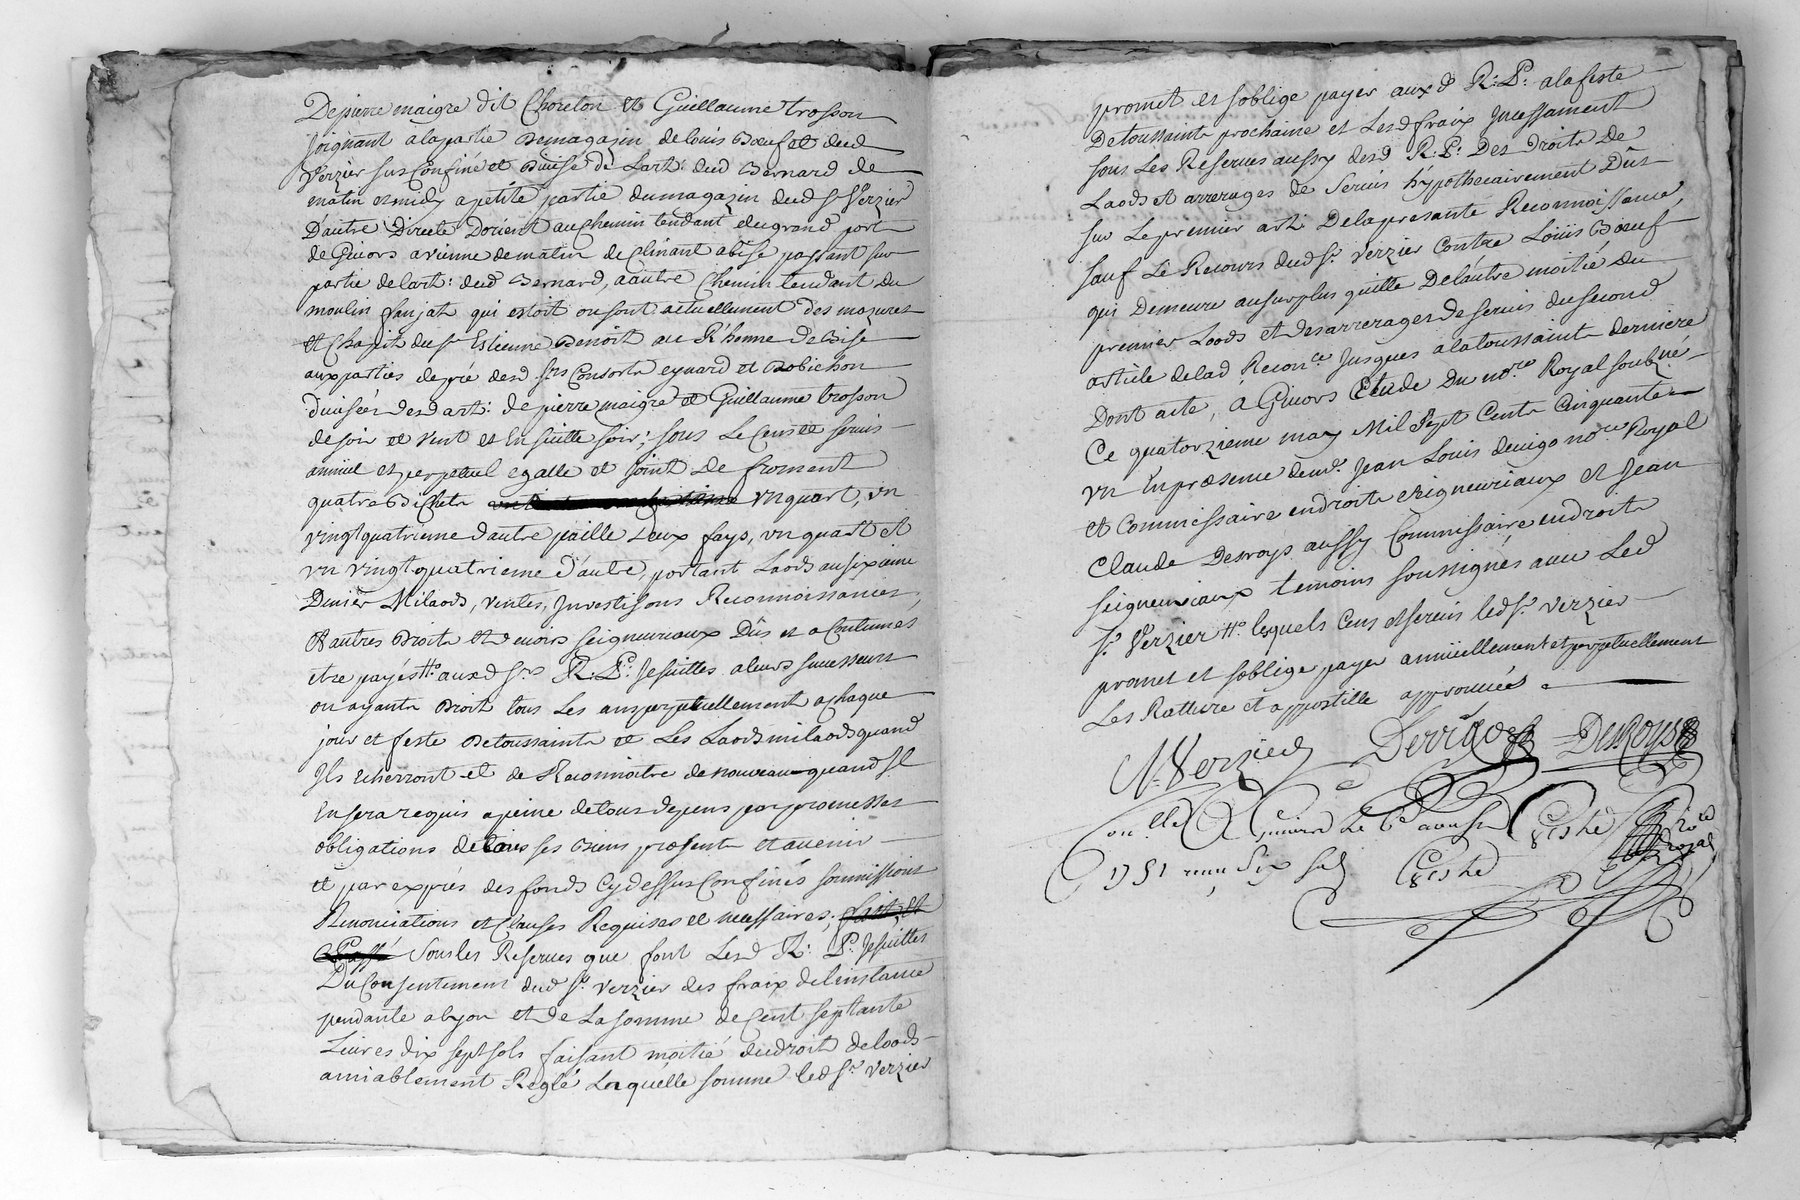 De pierre maigre dit Choreton et Guillaume trosson
Joignant a la partie de magazin de Louis Bœuf et dud
Verzier sus Confiné et divisé de L'art: dud Bernard de
matin et midy a petite partie du magazin dud Sr Verzier
D'autre Directe Dorient au Chemin tendant du grand port
de Givors a vienne de matin declinant a bise passant sur
partie de l'art: dud Bernard, a autre Chemin tendant du
moulin qui estoit ou sont actuellement des mazures
et du Sr Estienne Benoit au Rhonne de Bise
aux parties de pré desd Srs Consorts eynard et Robichon
divisées desd art: de pierre maigre et Guillaume trosson
de soir et vent et En suitte soir; sous Le Cens et servis
annuel et perpetuel egalle et joint de froment
quatre Bichets un quart, un
vingtquatrieme d'autre paille deux fays, un quart et
un vingt quatrieme d'autre, portant Laods au sixaime
Denier Milaods, ventes, Investisons Reconnoissances,
et autres Droits et devoirs seigneuriaux Dûs et a Coutumés
etre payés ## auxd Srs R: P: Jesuittes a leurs successeurs
ou ayants Droit tous Les ans perpetuellement a chaque
jour et feste De toussaints et Les Laods milaods quand
Ils echerront et de Reconnoitre de nouveau quand Il
En sera requis a peine de tous depens par promesses
obligations de tous ses biens presents et avenir
et par exprès des fonds Cy dessus Confinés soumissions
Renonciations et Clauses Requises et necessaires; fait et
Passé sous les Reserves que font Lesd R: P: Jesuittes
Du Consentement dud Sr Verzier des fraix de l'instance
pendante a Lyon et de La somme de Cent septante
Livres dix sept sols faisant moitié du droit de loods
amiablement Reglé Laquelle somme led Sr Verzier
promet et soblige payer auxd R: P: a la feste
De toussaints prochaine et Lesd fraix Incessament
sous Les Reserves aussy desd R: P: Des Droits de
Laods et arrerages de servis hypothecairement Dûs
sur Le premier art: De la presante Reconnoissance,
sauf Le Recours dud Sr Verzier Contre Loüis Bœuf
qui Demeure au surplus quitte De l'autre moitié du
premier Loods et des arrerages de servis du second
article de lad Reconce Jusques a la toussaints derniere
Dont acte, a Givors Etude Du nore Royal soubsné
Ce quatorzieme may Mil Sept Cents Cinquante
un En presence de me Jean Louis devigo nore Royal
et Commissaire en droits seigneuriaux et Jean
Claude Desroys aussy Commissaire en droits
seigneuriaux temoins soussignés avec Led
Sr Verzier ## lesquels Cens et servis led Sr Verzier
promet et soblige payer annuellement et perpetuellement
Les Ratture et appostille approuvées
Verzier Devigo Desroys
oulle a Givord Le 6e aoust
1751 reçu six sols
nore
royal